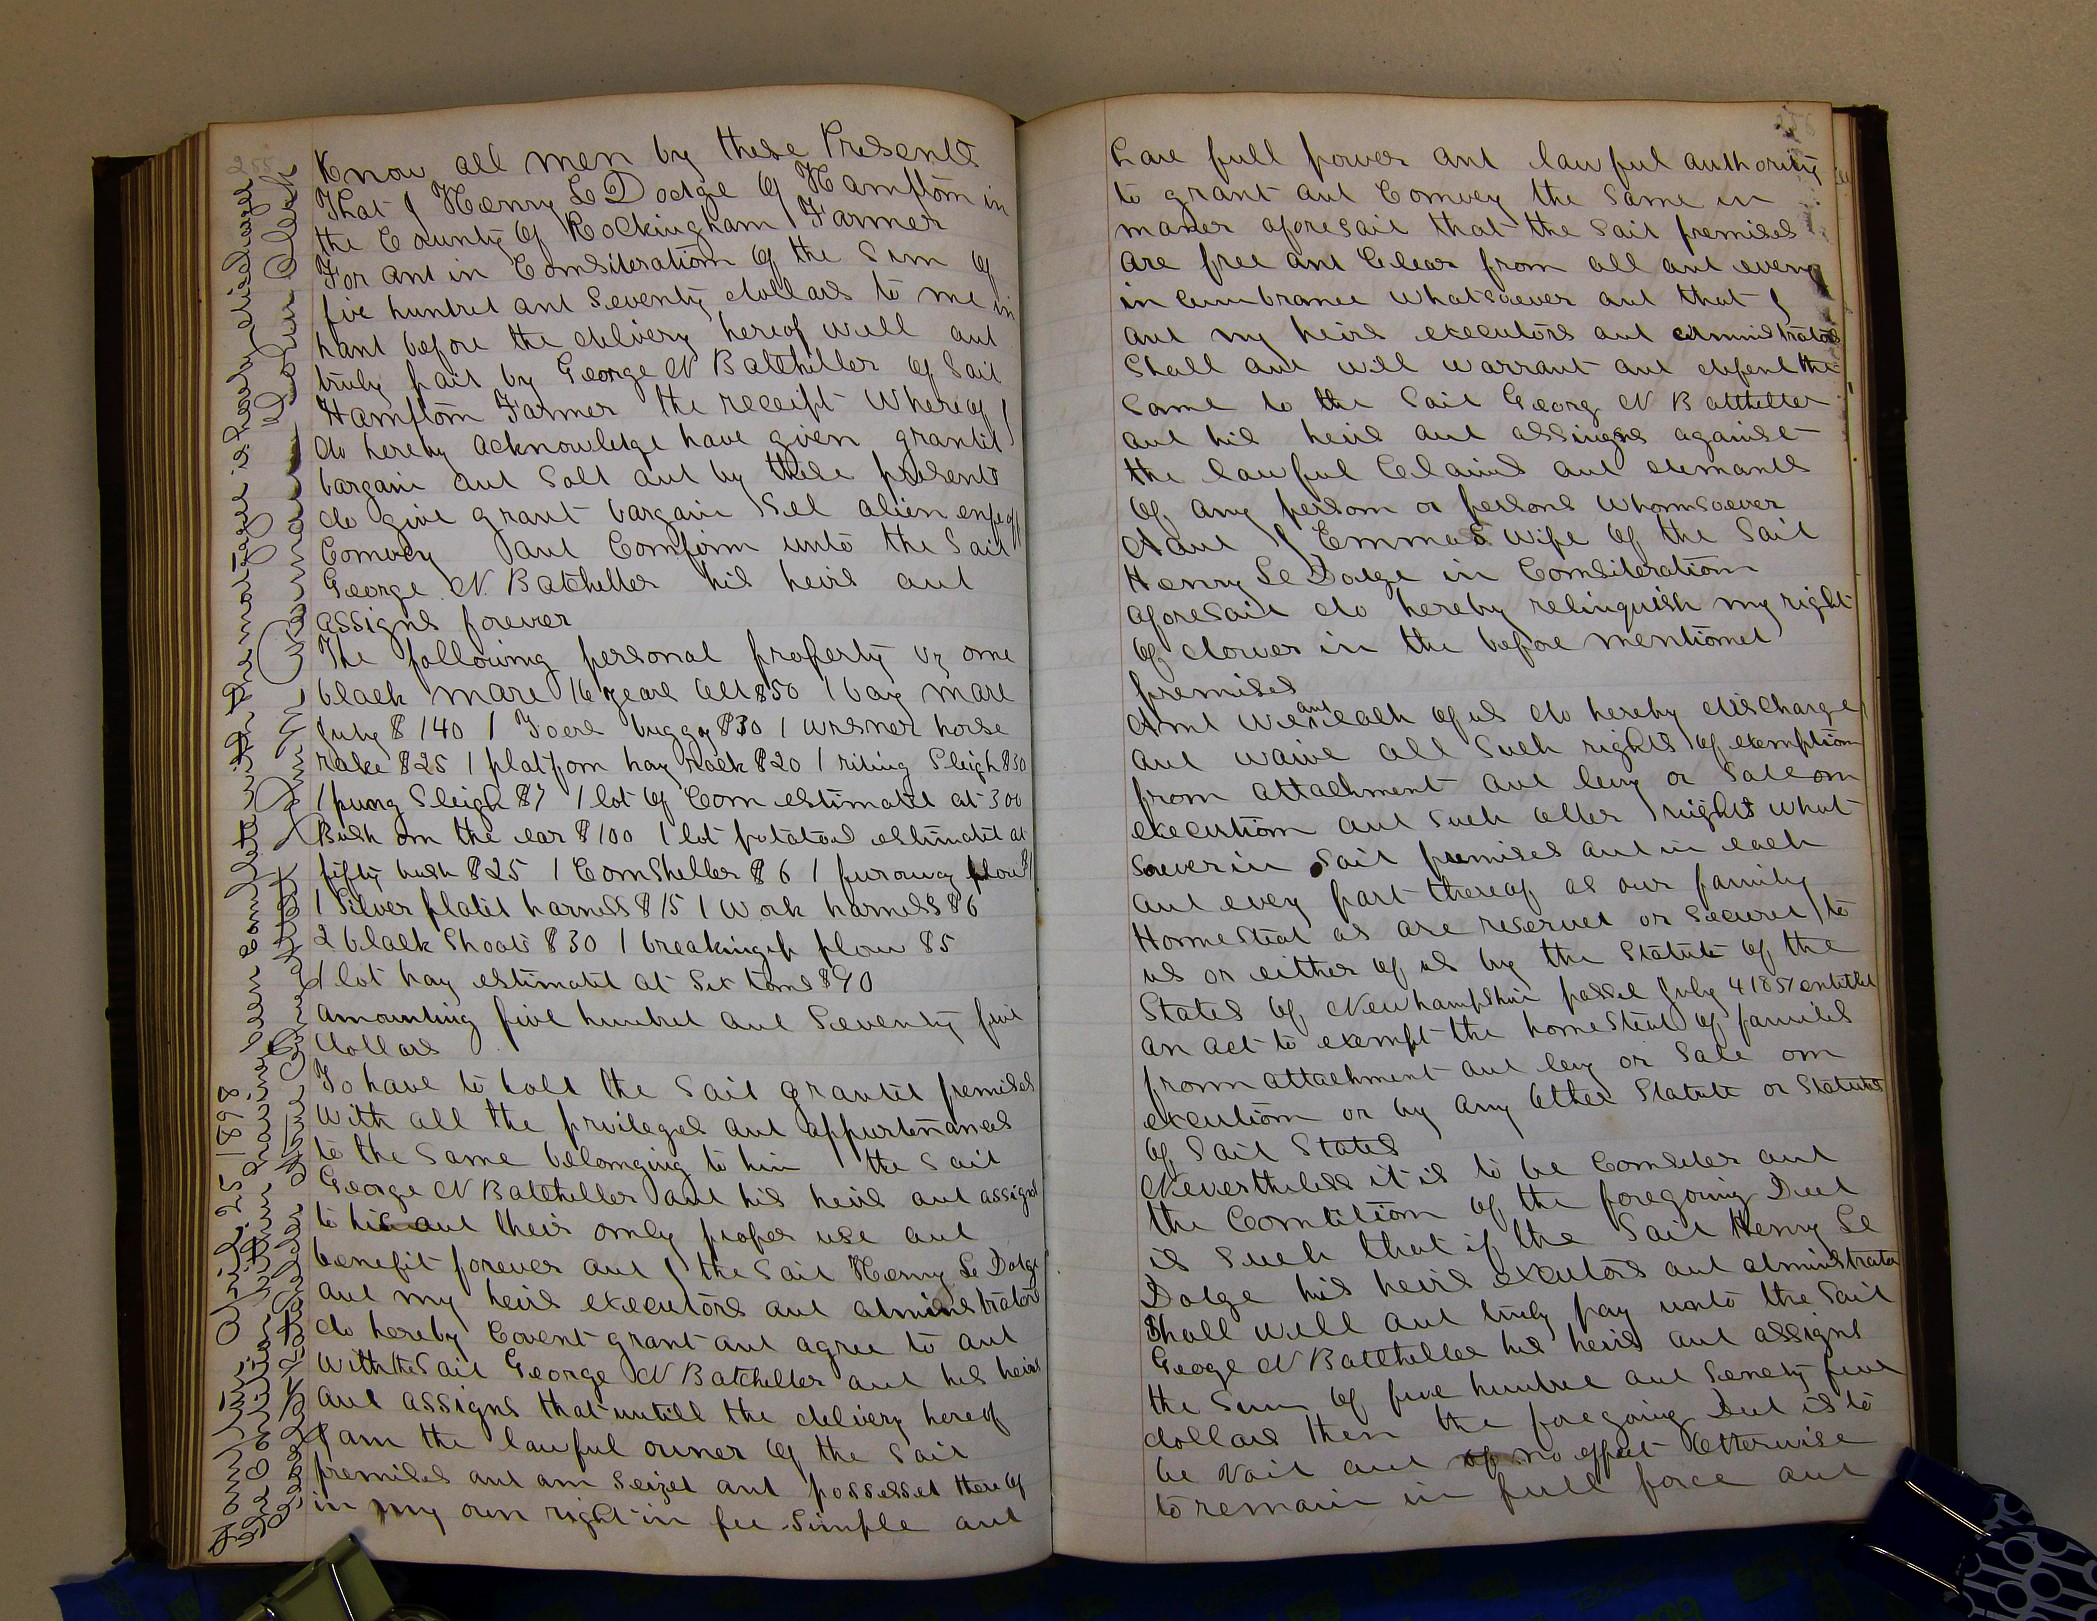 Know all men by these Presents
That I Henry Le Dodge of Hampton in
the County of Rockingham Farmer
For and in Consideration of the Sum of
five hundred and Seventy dollars to me in
hand before the delivery hereof well and
truly paid by George N Batcheller of Said
Hampton Farmer the receipt Whereof I
do hereby acknowledge have given granted
bargain and Sold and by these presents
do give grant bargain Sel alien enfeoff
Convey and Confirm unto the Said
George N. Batcheller his heirs and
assigns forever
The following personal property vz one
black mare 16 years old $50 1 bay mare
July $140 1 buggy $30 1 horse
rake $25 1 platform hay rack $20 1 riding Sleigh $30
1 pung Sleigh $7 1 lot of Corn estimated at 300
Bush on the ear $100 1 lot potatoes estimated at
fifty bush $25 1 Cornsheller $6 1 plow
1 Silver plated harness $15 1 Work harness $6
2 black Shoats $30 1 breakingup plow $5
1 lot hay estimated at Six tons $90
amounting five hundred and Seventy five
dollars
To have to hold the Said granted premises
with all the privileges and appurtenances
to the Same belonging to him the Said
George N Batcheller and his heirs and assigns
to his and their only proper use and
benefit forever and I the Said Henry Le Dodge
and my heirs executors and administrators
do hereby Covent grant and agree to and
with the Said George N Batcheller and his heirs
and assigns that untill the delivery hereof
I am the lawful owner of the Said
premises and am Seized and possessed thereof
in my own right in fee Simple and
Hampton April 25 1898
The Condition within having been Complete with the mortgage is hearby discharged
George N Batchelder Attest
Clerk
have full power and lawful authority
to grant and Convey the Same in
maner aforesaid that the Said premises
are free and Clear from all and every
incumbrance whatsoever and that I
and my heirs executors and administrators
Shall and will warrant and defend the
Same to the Said Georg N Batcheller
and his heirs and assingns against
the lawful Claims and demands
of any person or persons whomsoever
And I Emma S Wife of the Said
Henry Le Dodge in Consideration
aforesaid do hereby relinquish my right
of dower in the before mentioned
premises
And We and each of us do hereby discharge
and waive all Such rights of exemption
from attachment and levy or Sale on
execution and Such other rights what
soever in Said premises and in each
and every part thereof as our family
Homestead as are reserved or Secured to
us or either of us by the Statute of the
States of Newhampshire passed July 4 1851 entitled
an act to exempt the homestead of families
from attachment and levy or Sale on
execution or by any Other Statute or Statutes
of Said States
Nevertheless it is to be Consider and
the Condition of the foregoing Deed
is Such that if the Said Henry Le
Dodge his heirs executors and administrator
Shall well and truly pay unto the Said
George N Batcheller his heirs and assigns
the Sum of five hundred and Seventy five
dollars then the foregoing Deed is to
be Void and of no effect Otherwise
to remain in full force and